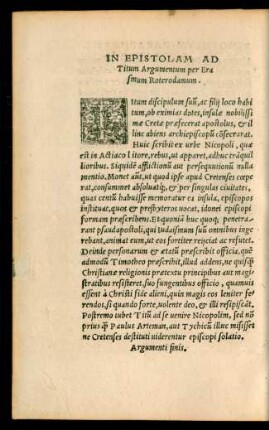 IN EPISTOLAM AD
Titum Argumentum per Era
smum Roterodamum.
Titum discipulum suū, ac filij loco habi
tum, ob eximias dotes, insulæ nobilissi
mæ Cretæ præfecerat apostolus, & il
linc abiens archiepiscopū cōsecrarat.
Huic scribit ex urbe Nicopoli, quæ
est in Actiaco litore, rebus, ut apparet, adhuc trāquil
lioribus. Siquidē afflictionū aut persequutionū nulla
mentio. Monet aūt, ut quod ipse apud Cretenses cœpe
rat, consummet absolvatq́;, & per singulas ciuitates,
quas centū habuisse memoratur ea insula, episcopos
instituat, quos & presbyteros uocat, idonei episcopi
formam præscribens. Et quoniā huc quoq; penetra-
rant pseudapostoli, qui Iudaismum suū omnibus inge
rebant, animat eum, ut eos fortiter reijciat ac refutet.
Deinde personarum & ætatū præscribit officia, que
admodū Timotheo præscribit, illud addens, ne quisq̄
Christianæ religionis prætextu principibus aut magi
stratibus resisteret, suo fungentibus officio, quamuis
essent à Christi fide alieni, quin magis eos leniter fe
rendos, si quando forte, uolente deo, & illi resipiscāt.
Postremo iubet Titū ad se uenire Nicopolim, sed nō
prius q̄ Paulus Arteman, aut Tychicū illuc misisset
ne Cretenses destituti uiderentur episcopi solatio.
Argumenti finis.